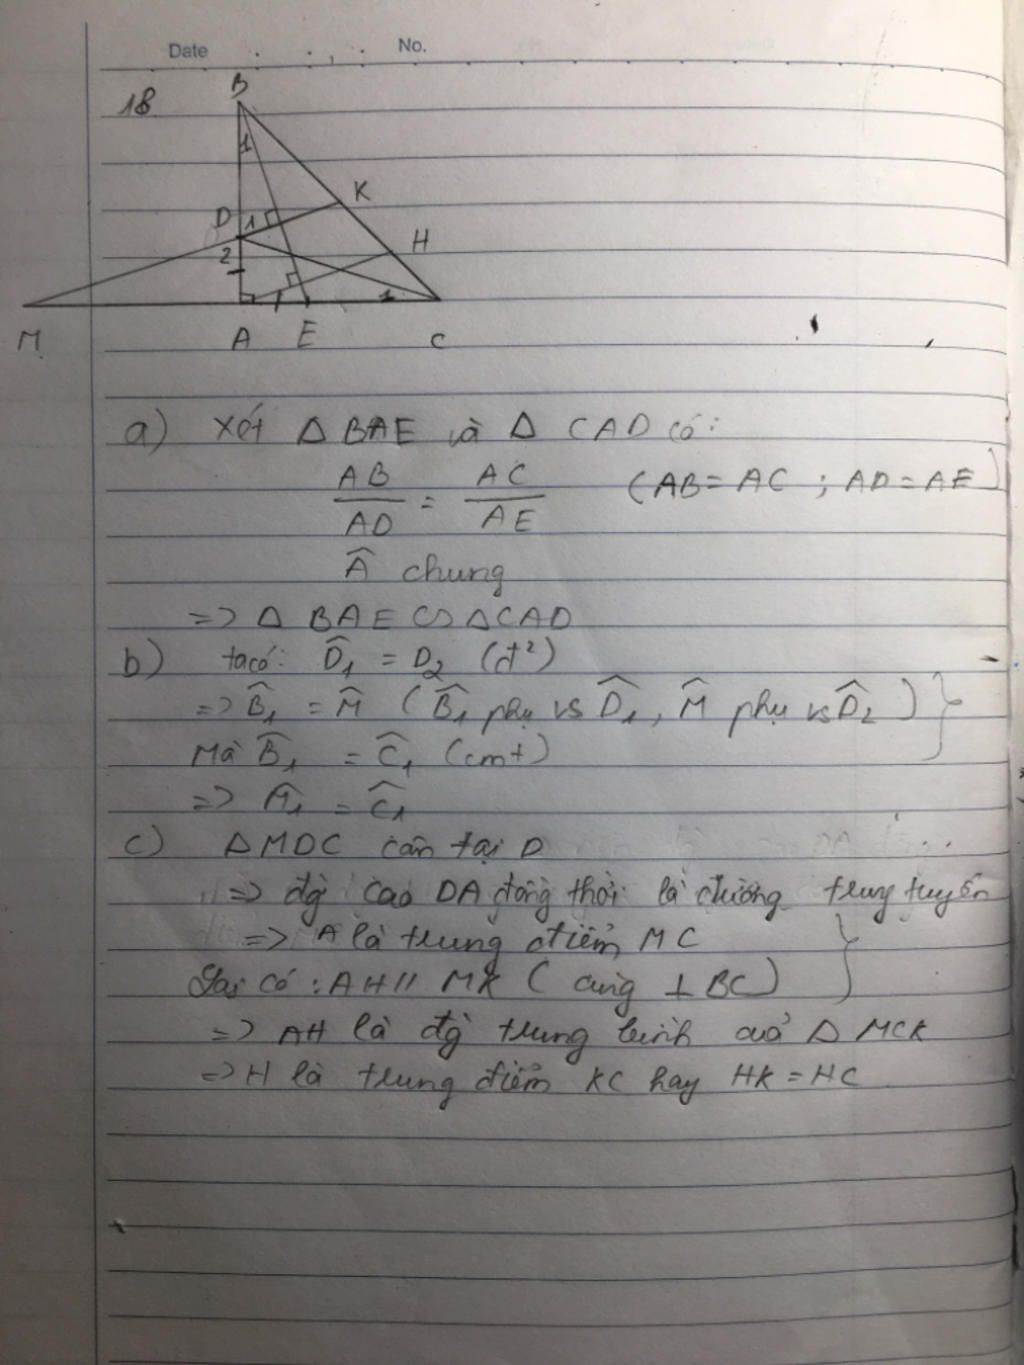 Date No.
18
B
1
K
D 1
H
2
1
M A E C
a) Xét Δ BAE và Δ CAD có:
AB/AD = AC/AE (AB = AC ; AD = AE)
Â chung
=> Δ BAE ∽ Δ CAD
b) ta có: D̂₁ = D₂ (đ²)
=> B̂₁ = M̂ (B̂₁ phụ vs D̂₁, M̂ phụ vs D̂₂) }
Mà B̂₁ = Ĉ₁ (cmt)
=> M̂₁ = Ĉ₁
c) ΔMDC cân tại D
=> đg cao DA đồng thời là đường trung tuyến
=> A là trung điểm MC }
Lại có : AH // MK ( cùng ⊥ BC)
=> AH là đg trung bình của Δ MCK
=> H là trung điểm KC hay HK = HC